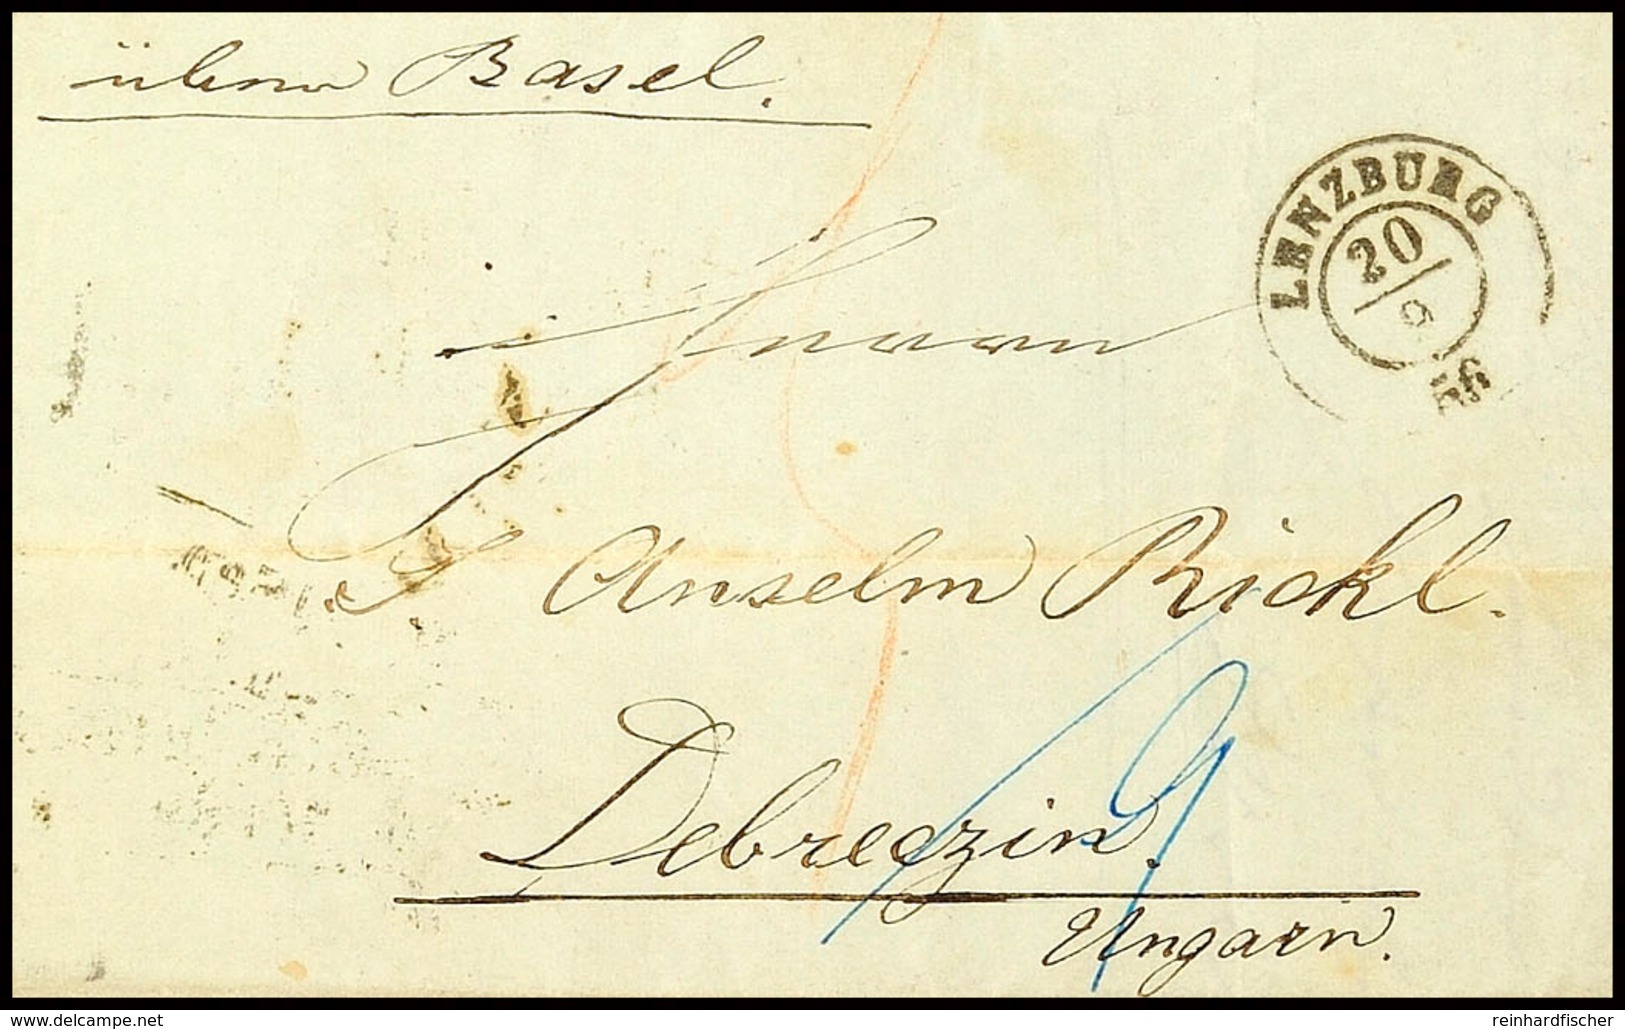 über Basel.
LENZBURG
20
9
56
Herrn
J Anselm Rickl.
Debreczin.
Ungarn.
9
www.delcampe.net
reinhardfischer